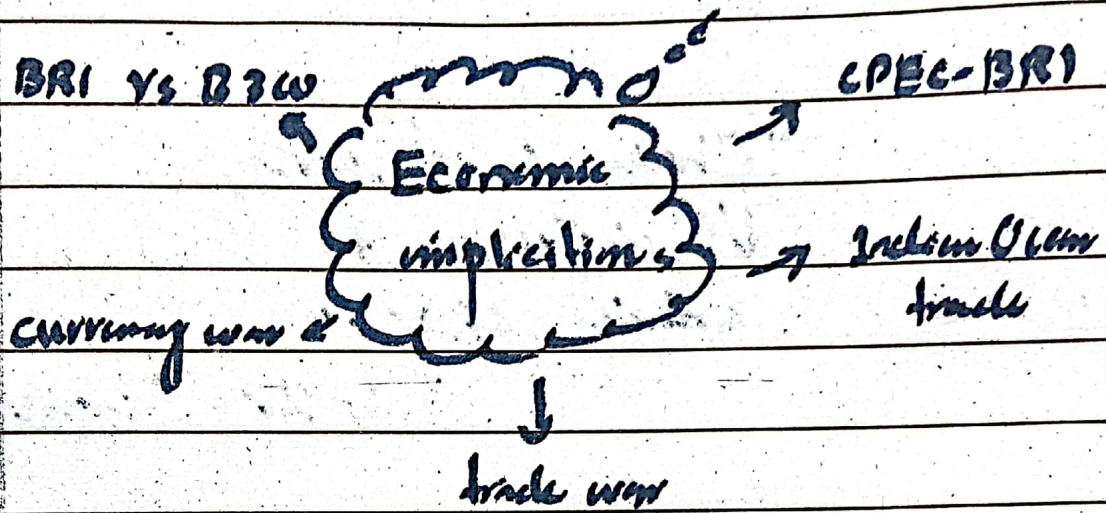 BRI vs B3W
CPEC-BRI
Economic
implications
Indian Ocean
trade
currency war
trade war